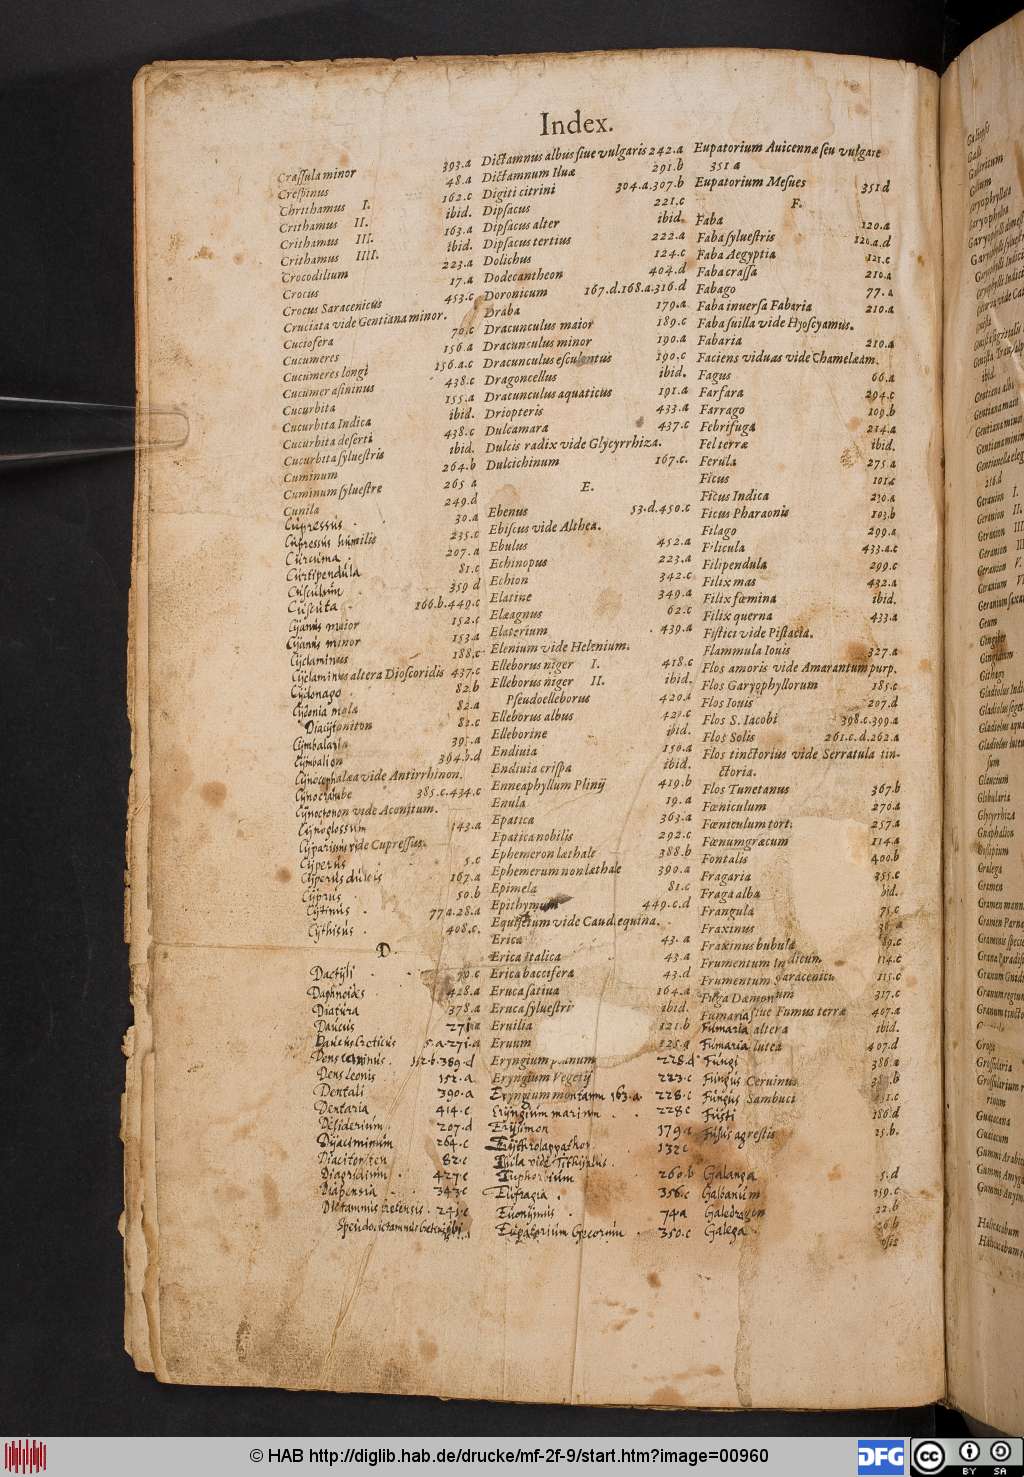 Index.
Craſſula minor 393.a
Creſpinus 48.a
Chrithamus I. 162.c
Crithamus II. ibid.
Crithamus III. 163.a
Crithamus IIII. ibid.
Crocodilium 223.a
Crocus 17.a
Crocus Saracenicus 453.c
Cruciata vide Gentiana minor.
Cucioſera 70.c
Cucumeres 156.a
Cucumeres longi 156.a.c
Cucumer aſininus 438.c
Cucurbita 155.a
Cucurbita Indica ibid.
Cucurbita deſerti 438.c
Cucurbita ſylueſtris ibid.
Cuminum 264.b
Cuminum ſylueſtre 265 a
Cunila 249.d
Cupressus . 30.a
Cupressus humilis 235.c
Curcuma . 207.a
Curtipendula 81.c
Cusculum 359 d
Cuscuta . 166.b.449.c
Cyanus maior 152.c
Cyanus minor 153.a
Cyclaminus 188.c
Cyclaminus altera Dioſcoridis 437.c
Cydonago . 82.b
Cydonia mala 82.a
Diacytoniton 82.c
Cymbalaria 395.a
Cymbalion 394.b.d
Cynocephalæa vide Antirrhinon.
Cynocrambe 385.c.434.c
Cynoctonon vide Aconitum.
Cynoglossum 143.a
Cyparissus vide Cupreſſus.
Cyperus . 5.c
Cyperus dulcis 167.a
Cyprus . 50.b
Cytinus . 77 a.28.a
Cythisus . 408.c.
D.
Dactyli . 79.c
Daphnoides . 428.a
Diatura 378.a
Daucus 271.a
Daucus Creticus 5.a.271.a
Dens caninus . 112.b.389.d
Dens leonis 152.a
Dentali 390.a
Dentaria 414.c
Desiderium . 207.d
Dyacyminum 264.c
82.c
Diagridium . 427.c
Diapensia . 343.c
Dictamnus cretensis . 241.c
Speudodictamnus Cretensis ibi.
Dictamnus albus ſiue vulgaris 242.a
Dictamnum Iluæ 291.b
Digiti citrini 304.a.307.b
Dipſacus 221.c
Dipſacus alter ibid.
Dipſacus tertius 222.a
Dolichus 124.c
Dodecantheon 404.d
Doronicum 167.d.168.a.316.d
Draba 179.a
Dracunculus maior 189.c
Dracunculus minor 190.a
Dracunculus eſculentus 190.c
Dragoncellus ibid.
Dracunculus aquaticus 191.a
Driopteris 433.a
Dulcamara 437.c
Dulcis radix vide Glycyrrhiza.
Dulcichinum 167.c.
E.
Ebenus 53.d.450.c
Ebiſcus vide Althea.
Ebulus 452.a
Echinopus 223.a
Echion 342.c
Elatine 349.a
Elæagnus 62.c
Elaterium 439.a
Elenium vide Helenium.
Elleborus niger I. 418.c
Elleborus niger II. ibid.
Pſeudoelleborus 420.a
Elleborus albus 421.c
Elleborine ibid.
Endiuia 150.a
Endiuia criſpa ibid.
Enneaphyllum Plinij 419.b
Enula 19.a
Epatica 363.a
Epatica nobilis 292.c
Ephemeron læthale 388.b
Ephemerum non læthale 390.a
Epimela 81.c
Epithymum 449.c.d
Equiſetum vide Caud.equina.
Erica 43.a
Erica italica 43.a
Erica baccifera 43.d
Eruca ſatiua 164.a
Eruca ſylueſtris ibid.
Eruilia 121.b
Eruum 125.a
Eryngium planum 228.d
Eryngium Vegetij 223.c
Eryngium montanum 163.a. 228.c
Eryngium marinum . 228.c
Erysimon 179.a
Erythrolappathon 132.c
Esula vide Tithymalus .
Euphorbium 260.b
Eufragia . 356.c
Euonymus . 74a
Eupatorium Græcorum . 350.c
Eupatorium Auicennæ ſeu vulgare
351 a
Eupatorium Meſues 351 d
F.
Faba 120.a
Faba ſylueſtris 120.a.d
Faba Aegyptia 121.c
Faba craſſa 210.a
Fabago 77.a
Faba inuerſa Fabaria 210.a
Faba ſuilla vide Hyoſcyamus.
Fabaria 210.a
Faciens viduas vide Chamelæam.
Fagus 66.a
Farfara 294.c
Farrago 109.b
Febrifuga 214.a
Fel terræ ibid.
Ferula 275.a
Ficus 101.c
Ficus Indica 230.a
Ficus Pharaonis 103.b
Filago 299.a
Filicula 433.a.c
Filipendula 299.c
Filix mas 432.a
Filix fœmina ibid.
Filix querna 433.a
Fiſtici vide Piſtacia.
Flammula Iouis 327.a
Flos amoris vide Amarantum purp.
Flos Garyophyllorum 185.c
Flos Iouis 207.d
Flos S. Iacobi 398.c.399.a
Flos Solis 261.c.d.262.a
Flos tinctorius vide Serratula tin-
ctoria.
Flos Tunetanus 367.b
Fœniculum 270.a
Fœniculum tort. 257.a
Fœnumgræcum 114.a
Fontalis 400.b
Fragaria 355.c
Fraga alba ibid.
Frangula 75.c
Fraxinus 38.a
Fraxinus bubula 89.c
Frumentum Indicum 114.c
Frumentum Saracenicu 115.c
Fuga Dæmonum 317.c
Fumaria ſiue Fumus terræ 407.a
Fumaria altera ibid.
Fumaria lutea 407.d
Fungi 386.a
Fungus Ceruinus 387.b
Fungus Sambuci
Fusti 186.d
Fusus agrestis 25.b.
Galanga 5.d
Galbanum 259.c
Galedragon 22.b
Galega .
Galiopſis
Gallitricum
Gallium
Garyophyllata
Gentiana maior
Gentiana minor
216.d
Geranion I.
Geranion II.
Geranion III
Geranion V.
Geranium ſaxa
Geum
Gingiber
Gingidium
Githago
Gladiolus Indi
Gladiolus ſeget
Gladiolus aqua
Gladiolus lutu
ſum
Glaucium
Globularia
Glycyrrhiza
Gnaphalion
Goſſipium
Gramen
Gramen mann.
Gramen Parna
Graminis ſpecie
Grana paradiſi
Granum Gnidi
Granum regium
Granum tinctor
Groſſularia
Groſſularium r
Guaiacana
Guaiacum
Gummi Arabic
Gummi Amygd
Halicacabum
Halicacabum r
© HAB http://diglib.hab.de/drucke/mf-2f-9/start.htm?image=00960
DFG
cc BY SA